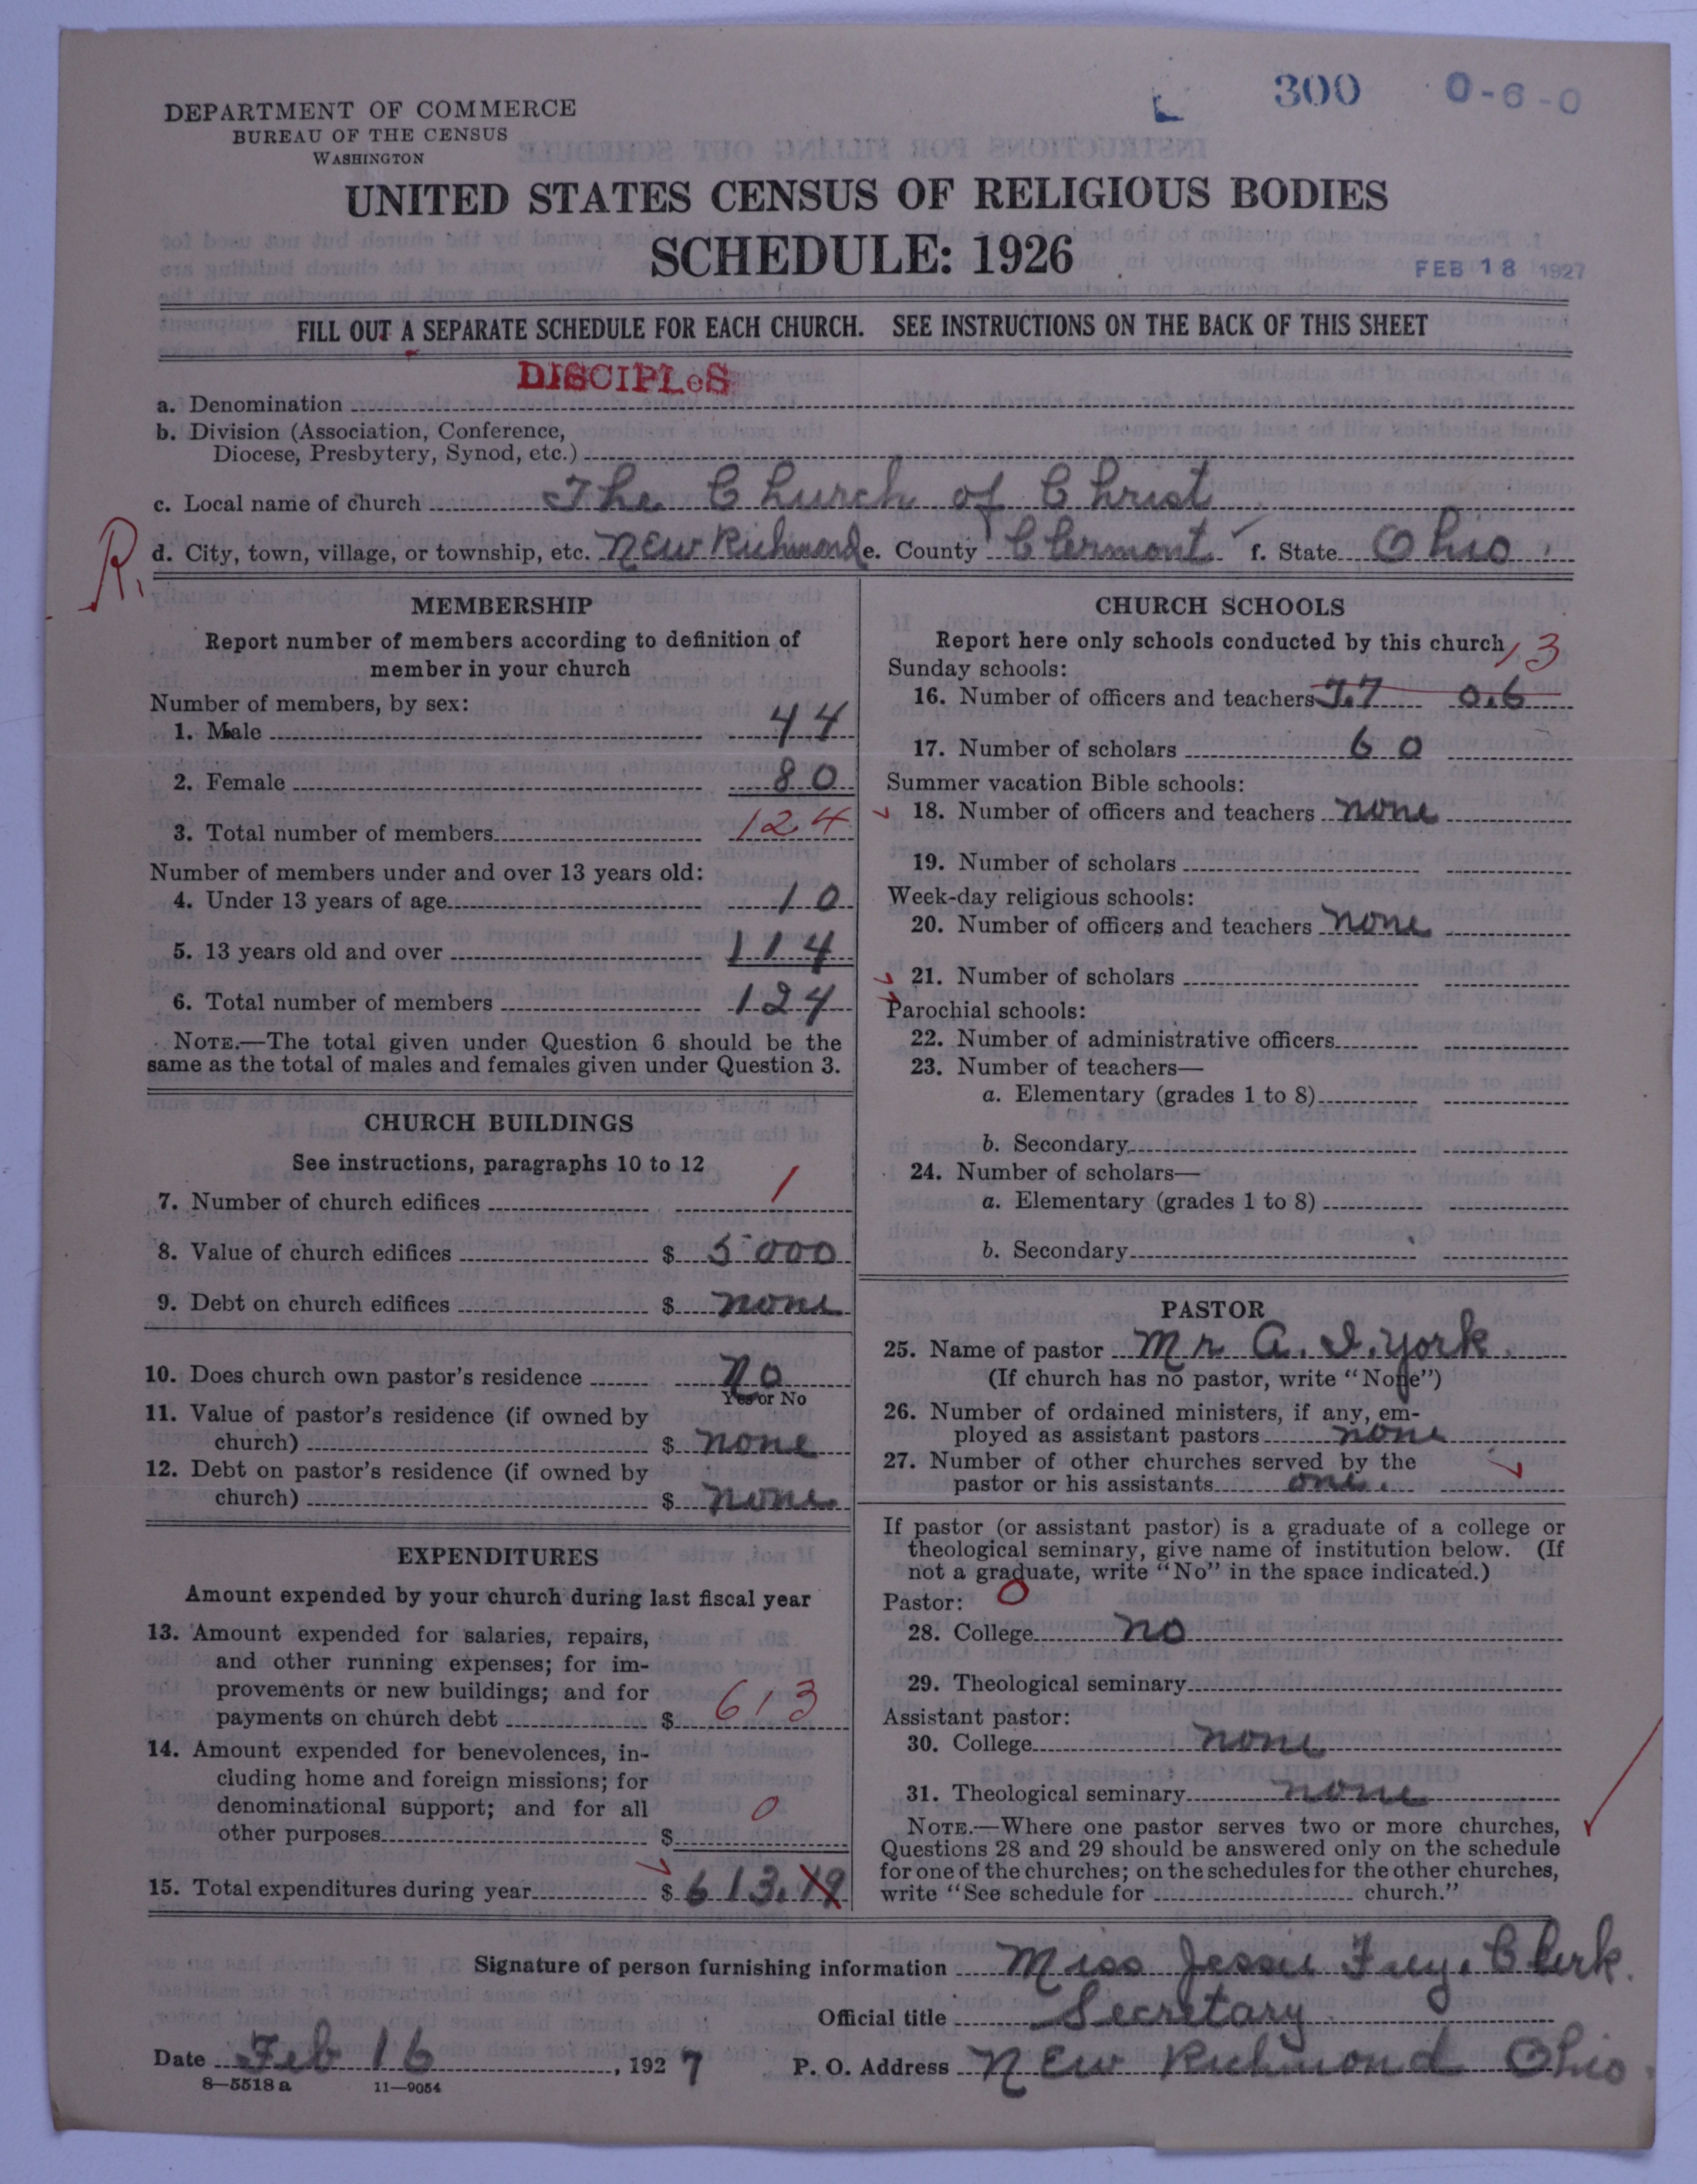 300 0-6-0
DEPARTMENT OF COMMERCE
BUREAU OF THE CENSUS
WASHINGTON
UNITED STATES CENSUS OF RELIGIOUS BODIES
SCHEDULE: 1926
FEB 18 1927
FILL OUT A SEPARATE SCHEDULE FOR EACH CHURCH. SEE INSTRUCTIONS ON THE BACK OF THIS SHEET
DISCIPLeS
a. Denomination
b. Division (Association, Conference,
Diocese, Presbytery, Synod, etc.)
c. Local name of church The Church of Christ
R. d. City, town, village, or township, etc. New Richmond e. County Clermont f. State Ohio
MEMBERSHIP
Report number of members according to definition of
member in your church
Number of members, by sex:
1. Male 44
2. Female 80
3. Total number of members 124
Number of members under and over 13 years old:
4. Under 13 years of age 10
5. 13 years old and over 114
6. Total number of members 124
NOTE.—The total given under Question 6 should be the
same as the total of males and females given under Question 3.
CHURCH BUILDINGS
See instructions, paragraphs 10 to 12
7. Number of church edifices 1
8. Value of church edifices $ 5000
9. Debt on church edifices $ none
10. Does church own pastor's residence No
Yes or No
11. Value of pastor's residence (if owned by
church) $ none
12. Debt on pastor's residence (if owned by
church) $ none
EXPENDITURES
Amount expended by your church during last fiscal year
13. Amount expended for salaries, repairs,
and other running expenses; for im-
provements or new buildings; and for
payments on church debt $ 613
14. Amount expended for benevolences, in-
cluding home and foreign missions; for
denominational support; and for all
other purposes $ 0
15. Total expenditures during year $ 613.19
CHURCH SCHOOLS
Report here only schools conducted by this church
13
Sunday schools:
16. Number of officers and teachers T.7 0.6
17. Number of scholars 60
Summer vacation Bible schools:
18. Number of officers and teachers none
19. Number of scholars
Week-day religious schools:
20. Number of officers and teachers none
21. Number of scholars
Parochial schools:
22. Number of administrative officers
23. Number of teachers—
a. Elementary (grades 1 to 8)
b. Secondary
24. Number of scholars—
a. Elementary (grades 1 to 8)
b. Secondary
PASTOR
25. Name of pastor Mr A. I. York
(If church has no pastor, write "None")
26. Number of ordained ministers, if any, em-
ployed as assistant pastors none
27. Number of other churches served by the
pastor or his assistants one.
If pastor (or assistant pastor) is a graduate of a college or
theological seminary, give name of institution below. (If
not a graduate, write "No" in the space indicated.)
Pastor: 0
28. College no
29. Theological seminary
Assistant pastor:
30. College none
31. Theological seminary none
NOTE.—Where one pastor serves two or more churches,
Questions 28 and 29 should be answered only on the schedule
for one of the churches; on the schedules for the other churches,
write "See schedule for church."
Signature of person furnishing information Miss Jessie Clerk.
Official title Secretary
Date Feb 16, 1927 P. O. Address New Richmond Ohio
8—5518 a 11—9054